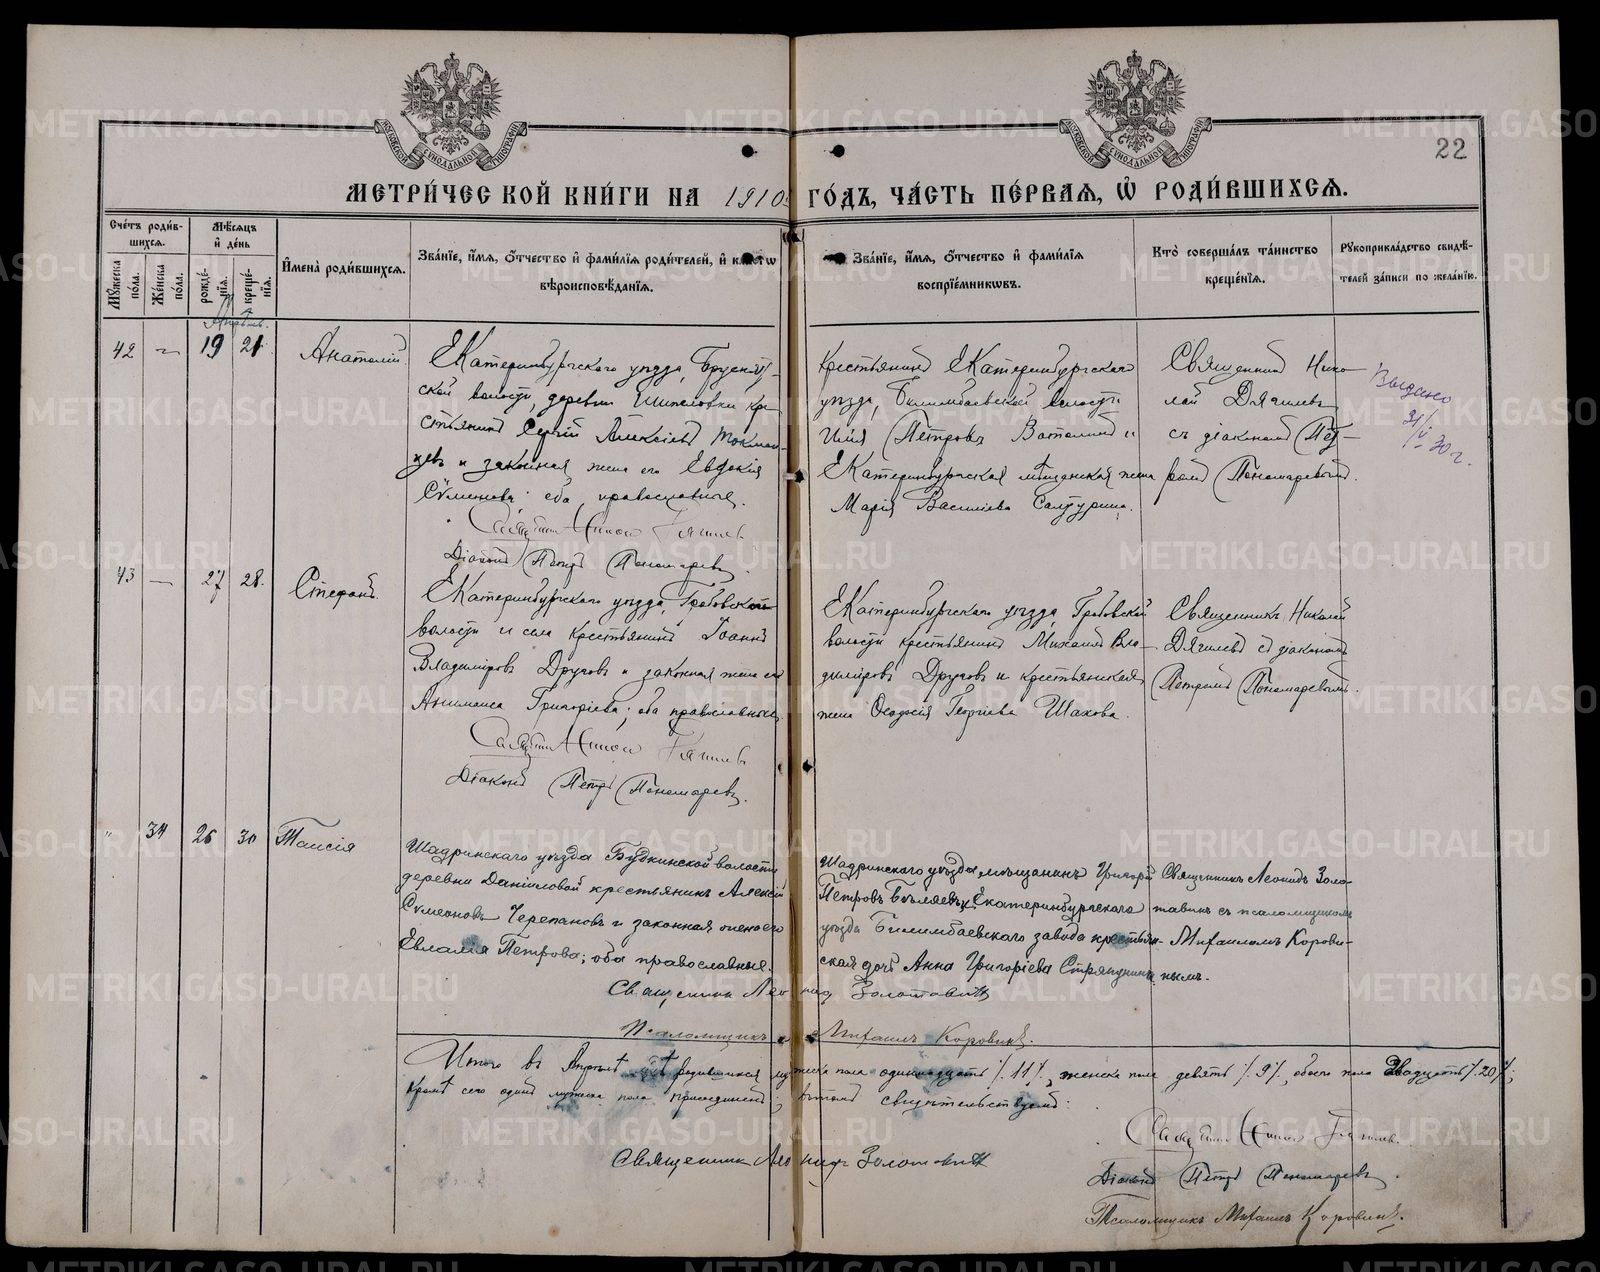 МОСКОВСКОЙ СѴНОДАЛЬНОЙ ТИПОГРАФІИ
МОСКОВСКОЙ СѴНОДАЛЬНОЙ ТИПОГРАФІИ
22
МЕТРИ́ЧЕСКОЙ КНИ́ГИ НА 1910 ГО́ДЪ, ЧА́СТЬ ПЕ́РВАѦ, Ѽ РОДИ́ВШИХСѦ.
Сче́тъ роди́в-
шихсѧ.
Мꙋ́жеска по́ла.
Же́нска по́ла.
Мѣ́сѧцъ
и҆ де́нь
рожде́-
нїѧ.
креще́-
нїѧ.
И҆мена̀ роди́вшихсѧ.
Зва́нїе, и҆́мѧ, ѻ҆́тчество и҆ фами́лїѧ роди́телей, и҆ какѡ́гѡ
вѣроисповѣ́данїѧ.
Зва́нїе, и҆́мѧ, ѻ҆́тчество и҆ фами́лїѧ
воспрїе́мникѡвъ.
Кто̀ соверша́лъ та́инство
креще́нїѧ.
Рꙋкоприкла́дство свидѣ́-
телей за́писи по жела́нїю.
Апрѣль.
42 — 19 21
Анатолій
Екатеринбургскаго уѣзда, Бруснят-
ской волости, деревни Шипеловки кре-
стьянинъ Сергій Алексіевъ Токман-
цевъ и законная жена его Евдокія
Сѵмеонова; оба православные.
Священникъ Николай Дягилевъ
Діаконъ Петръ Пономаревъ.
Крестьянинъ Екатеринбургскаго
уѣзда, Билимбаевской волости
Илія Петровъ Ватолинъ и
Екатеринбургская мѣщанская жена
Марія Василіева Салтурина.
Священникъ Нико-
лай Дягилевъ
съ діакономъ Пет-
ромъ Пономаревымъ.
Выдано
31/V 30 г.
43 — 27 28.
Стефанъ
Екатеринбургскаго уѣзда, Гробовской
волости и села крестьянинъ Іоаннъ
Владиміровъ Друговъ и законная жена его
Анимаиса Григоріева; оба православные.
Священникъ Николай Дягилевъ
Діаконъ Петръ Пономаревъ.
Екатеринбургскаго уѣзда, Гробовской
волости крестьянинъ Михаилъ Вла-
диміровъ Друговъ и крестьянская
жена Ѳеодосія Георгіева Шахова.
Священникъ Николай
Дягилевъ съ діакономъ
Петромъ Пономаревымъ.
" 34 26 30
Таисія
Шадринскаго уѣзда Буткинской волости
деревни Даниловой крестьянинъ Алексій
Сѵмеоновъ Черепановъ и законная жена его
Евлалія Петрова; оба православные.
Священникъ Леонидъ Золотавинъ
Псаломщикъ Михаилъ Коровинъ.
Шадринскаго уѣзда мѣщанинъ Григорій
Петровъ Бѣляевъ и Екатеринбургскаго
уѣзда Билимбаевскаго завода крестьян-
ская дочь Анна Григоріева Стряпунина.
Священникъ Леонидъ Золо-
тавинъ съ псаломщикомъ
Михаиломъ Корови-
нымъ.
Итого въ Апрѣлѣ родившихся мужеска пола одиннадцать /.11/., женска пола девять /.9/., обоего пола двадцать /.20/.;
кромѣ сего одинъ мужеска пола присоединенъ; въ томъ свидѣтельствуемъ:
Священникъ Николай Дягилевъ.
Священникъ Леонидъ Золотавинъ
Діаконъ Петръ Пономаревъ.
Псаломщикъ Михаилъ Коровинъ.
METRIKI.GASO-URAL.RU